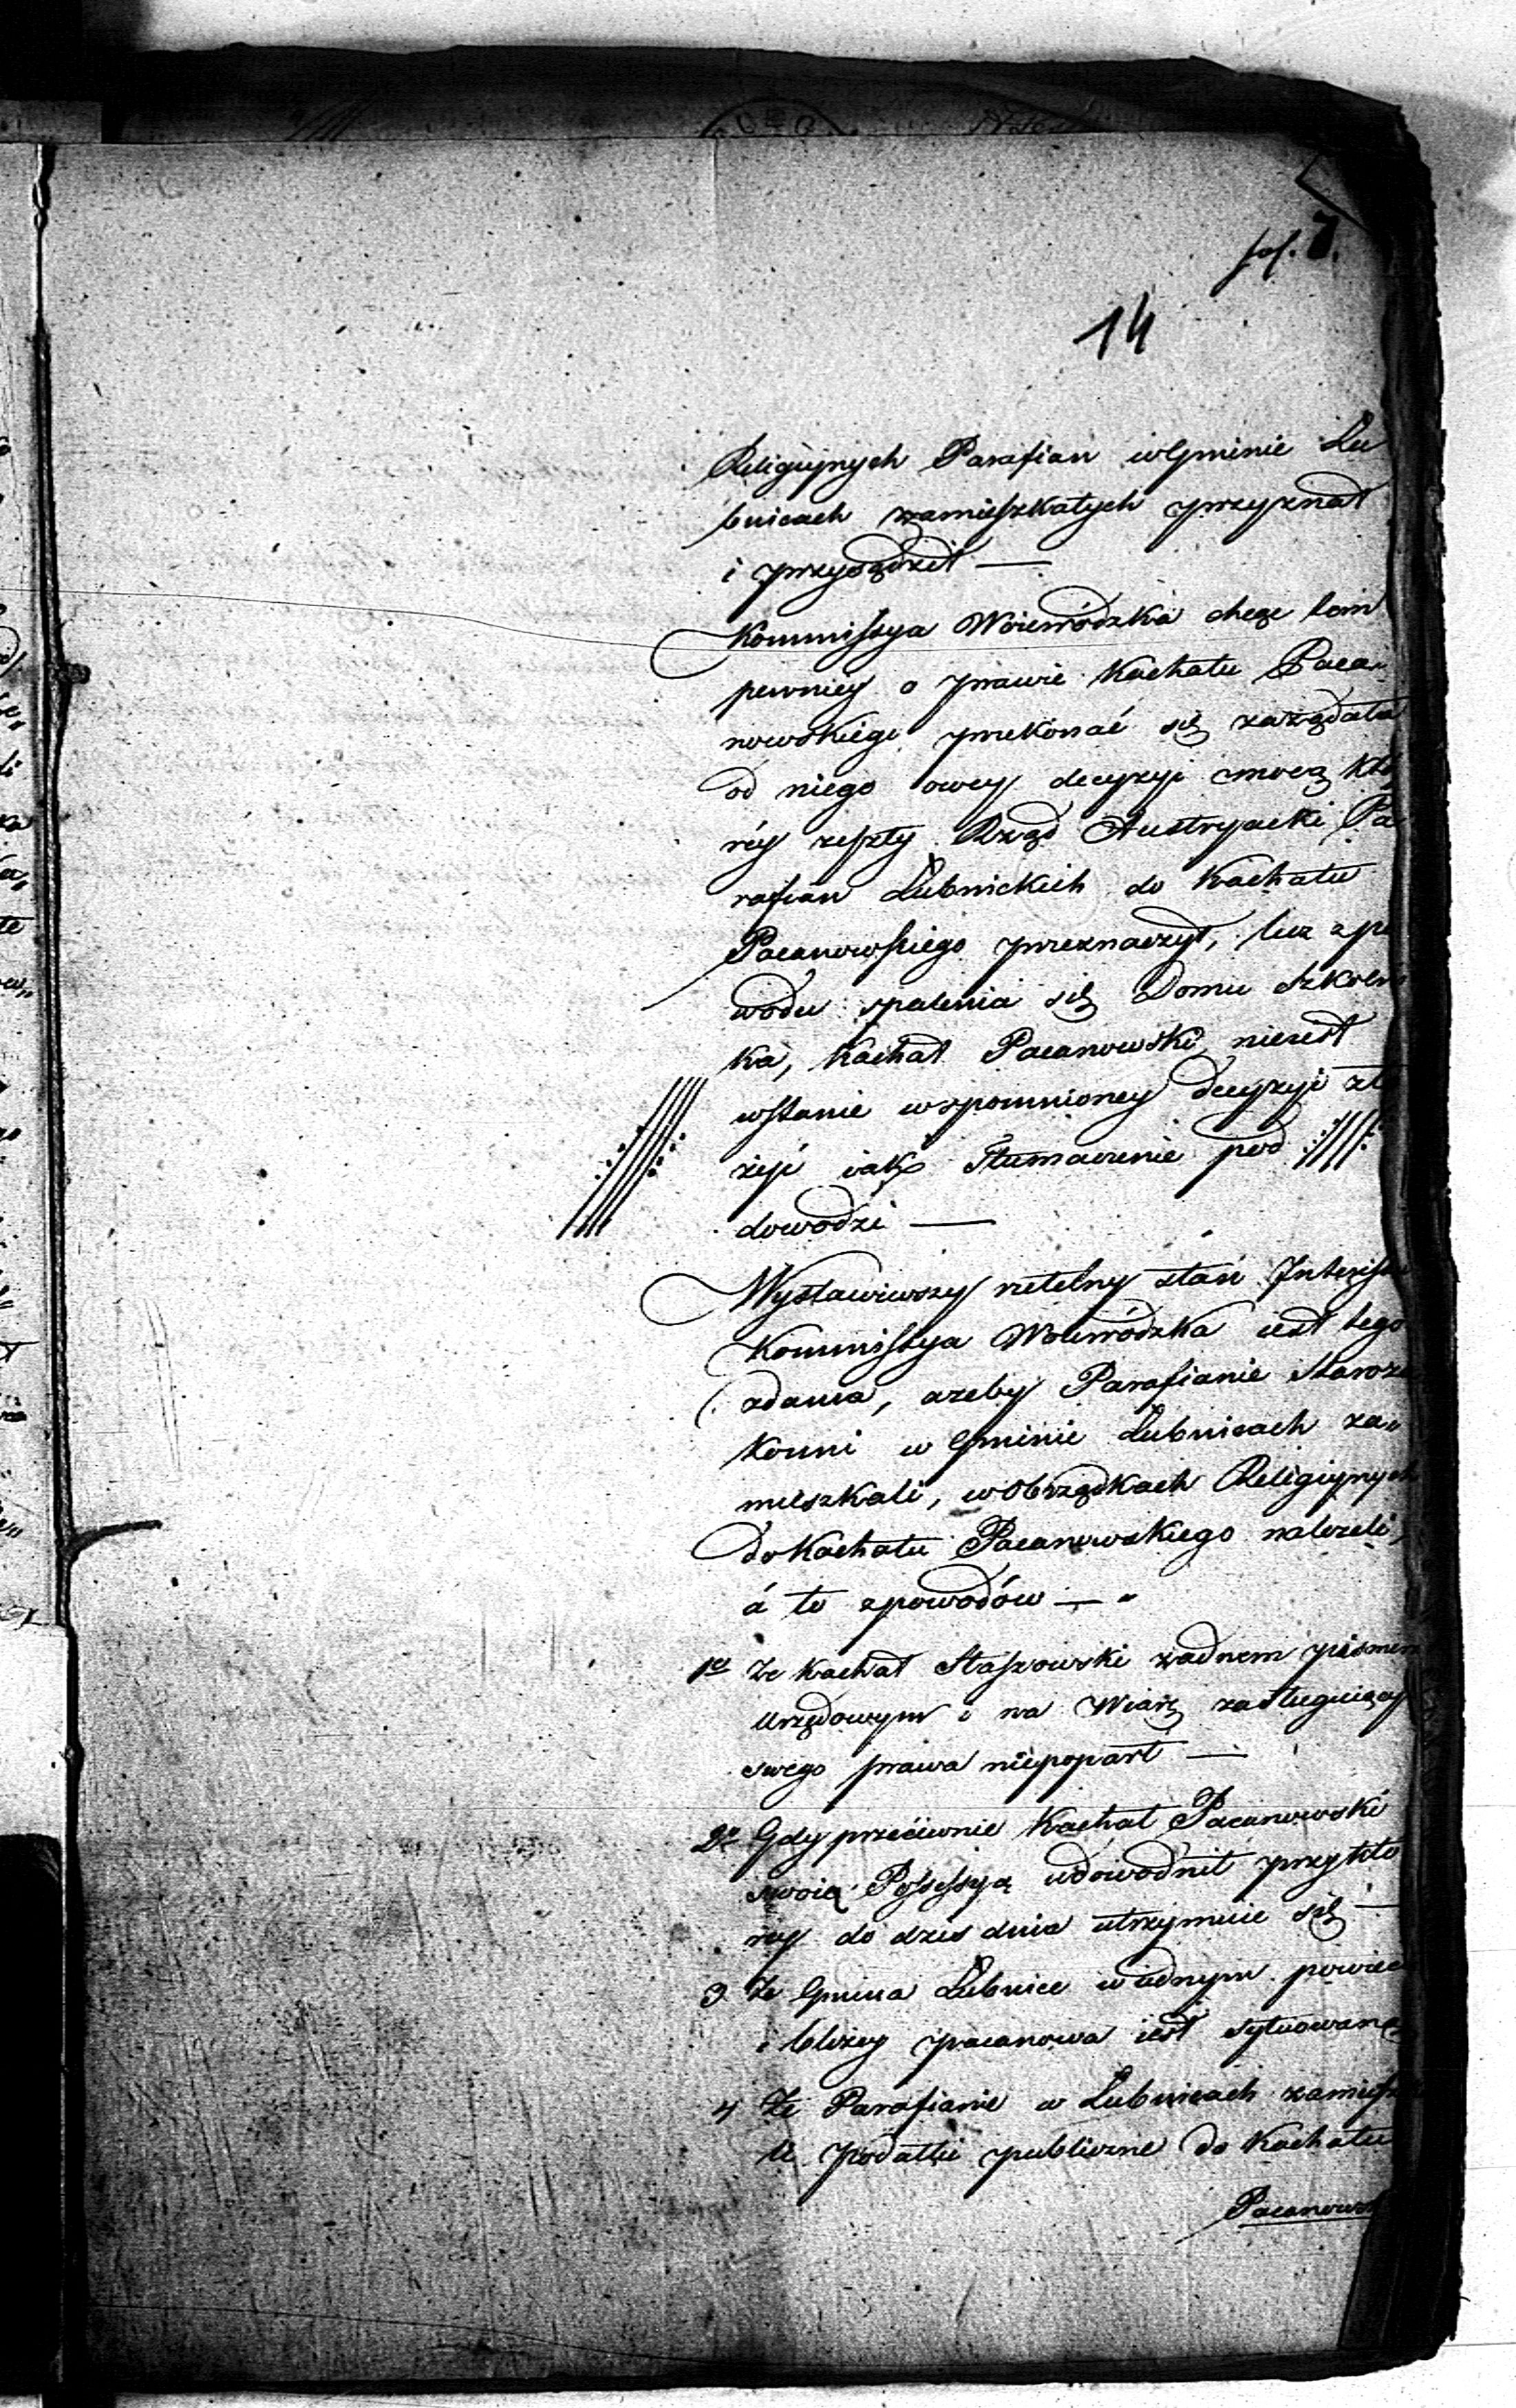 fol. 7.
14
Religiynych Parafian w Gminie Łu
bnicach zamieszkałych przyznał
i przysądził —
Kommissya Woiewódzka chcąc tem
pewniey o prawie Kachału Paca„
nowskiego przekonać się zażądała
od niego owey decyzyi mocą któ
réy zeszły Rząd Austryacki Pa
rafian Łubnickich do Kachału
Pacanowskiego przeznaczył, lecz z po
wodu spalenia się Domu Szkolni
ka, Kachał Pacanowski niejest
wstanie wspomnioney decyzyi zło
żyć iak Tłumaczenie pod ://///:
dowodzi —
Wystawiwszy rzetelny stan Interessu
Kommissya Woiewódzka iest tego
zdania, ażeby Parafianie Staroza
konni w Gminie Łubnicach za„
mieszkali, w Obrządkach Religiynych
do Kachału Pacanowskiego należeli,
á to z powodów —
1o Że Kachał Staszowski żadnem pismem
Urzędowym i na Wiarę zasługuiącym
swego prawa niepoparł —
2o Gdy przeciwnie Kachał Pacanowski
swoią Possessyą udowodnił przy któ
rey do dziś dnia utrzymuie się —
3 Że Gmina Łubnice w iednym powiecie
i bliżey Pacanowa iest sytuowana
4 Że Parafianie w Łubnicach zamieszka
li podatki publiczne do Kachału
Pacanowsk